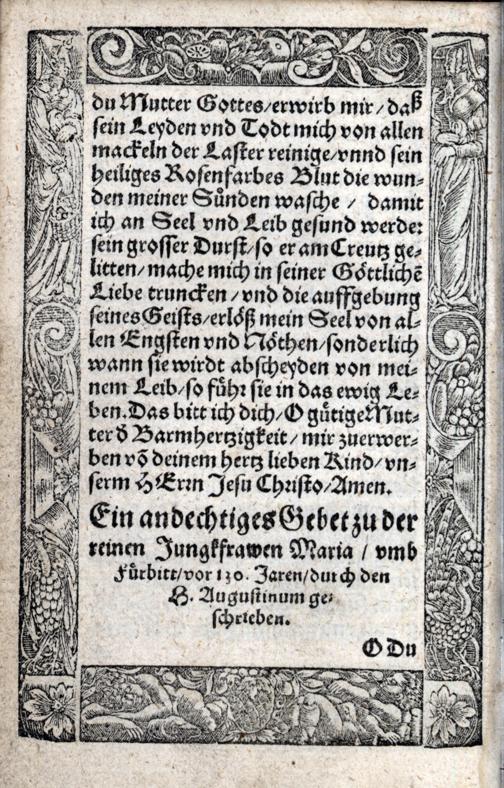 du Mutter Gottes/erwirb mir/daß
sein Leyden vnd Todt mich von allen
mackeln der Laster reinige/vnnd sein
heiliges Rosenfarbes Blut die wun⸗
den meiner Sünden wasche / damit
ich an Seel vnd Leib gesund werde:
sein grosser Durst/so er am Creutz ge⸗
litten/mache mich in seiner Göttlichē
Liebe truncken/vnd die auffgebung
seines Geists/erlöß mein Seel von al⸗
len Engsten vnd Nöthen/sonderlich
wann sie wirdt abscheyden von mei⸗
nem Leib/so führ sie in das ewig Le⸗
ben. Das bitt ich dich/O gütige Mut⸗
ter đ Barmhertzigkeit/mir zuerwer⸗
ben võ deinem hertz lieben Kind/vn⸗
serm HErrn Jesu Christo/Amen.
Ein andechtiges Gebet zu der
reinen Jungkfrawen Maria / vmb
Fürbitt/vor 130. Jaren/durch den
H. Augustinum ge⸗
schrieben.
O Du